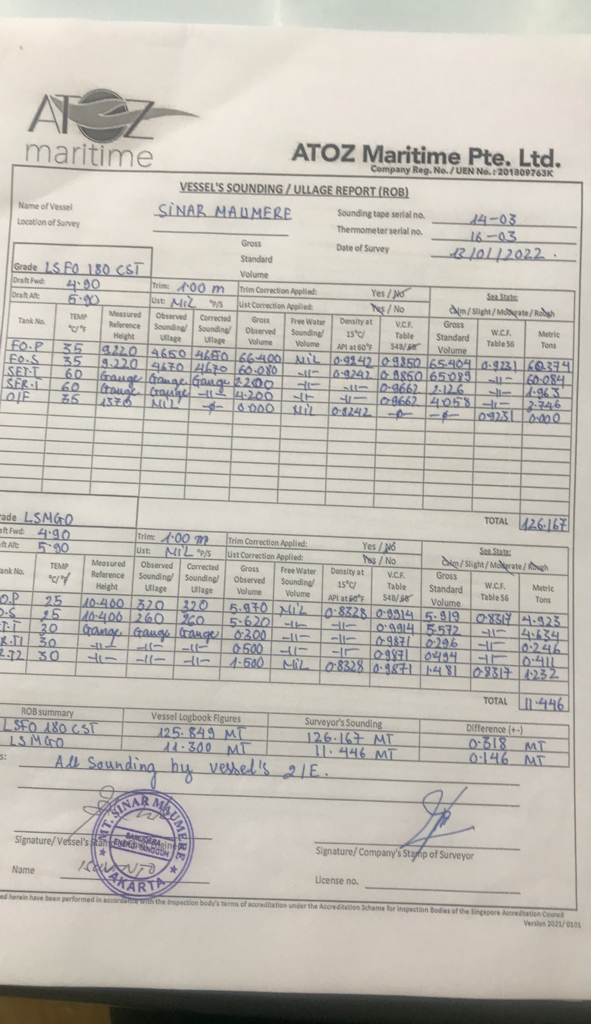 ATOZ
maritime
ATOZ Maritime Pte. Ltd.
Company Reg. No. / UEN No. : 201809763K
VESSEL'S SOUNDING / ULLAGE REPORT (ROB)
Name of Vessel SINAR MAUMERE Sounding tape serial no. 14-03
Location of Survey Thermometer serial no. 16-03
Gross Standard Volume Date of Survey 13/01/2022.
Grade LSFO 180 CST
Draft Fwd: 4.90 Trim: 1.00 m Trim Correction Applied: Yes / No Sea State:
Draft Aft: 5.90 List: NIL °P/S List Correction Applied: Yes / No Calm / Slight / Moderate / Rough
Tank No. TEMP °C/°F Measured Reference Height Observed Sounding/ Ullage Corrected Sounding/ Ullage Gross Observed Volume Free Water Sounding/ Volume Density at 15°C/ API at 60°F V.C.F. Table 54B/ Gross Standard Volume W.C.F. Table 56 Metric Tons
FO.P 35 9.220 4650 4650 66.400 NIL 0.9242 0.9850 65.404 0.9231 60.374
FO.S 35 9.220 4670 4670 60.080 -11- 0.9242 0.9850 65.089 -11- 60.084
SET.T 60 Gauge Gauge Gauge 2.200 -11- -11- 0.9662 2.126 -11- 1.963
SER.T 60 Gauge Gauge -11- 4.200 -11- -11- 0.9662 4.058 -11- 3.746
O/F 35 1370 NIL 0.000 NIL 0.9242 0.9231 0.000
TOTAL 126.167
ade LSMGO
ft Fwd: 4.90 Trim: 1.00 m Trim Correction Applied: Yes / No Sea State:
ft Aft: 5.90 List: NIL °P/S List Correction Applied: Yes / No Calm / Slight / Moderate / Rough
ank No. TEMP °C/°F Measured Reference Height Observed Sounding/ Ullage Corrected Sounding/ Ullage Gross Observed Volume Free Water Sounding/ Volume Density at 15°C/ API at 60°F V.C.F. Table 54B/ Gross Standard Volume W.C.F. Table 56 Metric Tons
O.P 25 10.400 320 320 5.970 NIL 0.8328 0.9914 5.919 0.8317 4.923
O.S 25 10.400 260 260 5.620 -11- -11- 0.9914 5.572 -11- 4.634
T.T 30 Gauge Gauge Gauge 0.300 -11- -11- 0.9871 0.296 -11- 0.246
R.T1 30 -11- -11- -11- 0.500 -11- -11- 0.9871 0.494 -11- 0.411
R.T2 30 -11- -11- -11- 1.500 NIL 0.8328 0.9871 1.481 0.8317 1.232
TOTAL 11.446
ROB summary Vessel Logbook Figures Surveyor's Sounding Difference (+-)
LSFO 180 CST 125.849 MT 126.167 MT 0.318 MT
LSMGO 11.300 MT 11.446 MT 0.146 MT
s: All Sounding by vessel's 2/E.
MT. SINAR MAUMERE
JAKARTA
Signature/ Vessel's Signature/ Company's Stamp of Surveyor
Name
License no.
ed herein have been performed in accordance with the inspection body's terms of accreditation under the Accreditation Scheme for Inspection Bodies of the Singapore Accreditation Council
Version 2021/ 0101